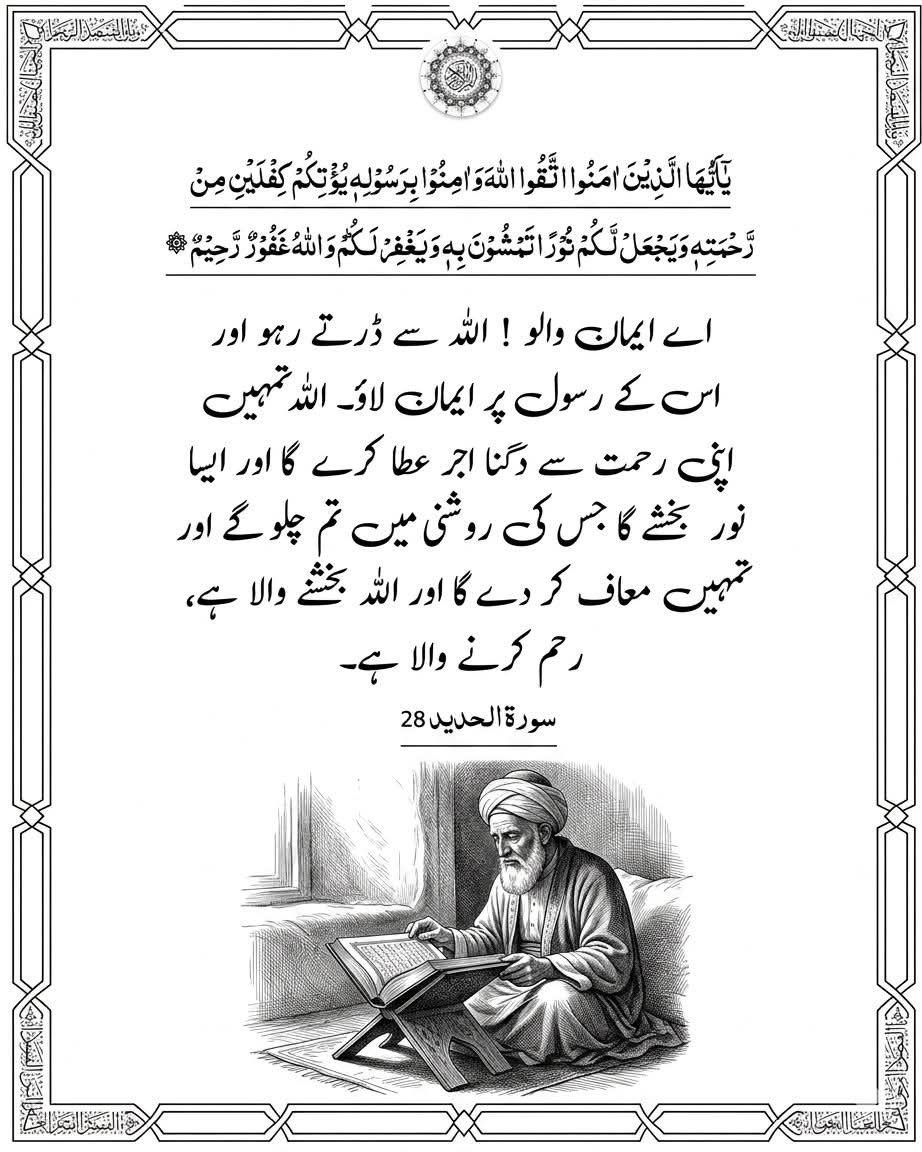 يٰۤاَيُّهَا الَّذِيْنَ اٰمَنُوا اتَّقُوا اللّٰهَ وَاٰمِنُوْا بِرَسُوْلِهٖ يُؤْتِكُمْ كِفْلَيْنِ مِنْ
رَّحْمَتِهٖ وَيَجْعَلْ لَّكُمْ نُوْرًا تَمْشُوْنَ بِهٖ وَيَغْفِرْ لَكُمْؕ وَاللّٰهُ غَفُوْرٌ رَّحِيْمٌ ۞
اے ایمان والو ! اللہ سے ڈرتے رہو اور
اس کے رسول پر ایمان لاؤ۔ اللہ تمہیں
اپنی رحمت سے دگنا اجر عطا کرے گا اور ایسا
نور بخشے گا جس کی روشنی میں تم چلو گے اور
تمہیں معاف کر دے گا اور اللہ بخشنے والا ہے،
رحم کرنے والا ہے۔
سورۃ الحدید 28